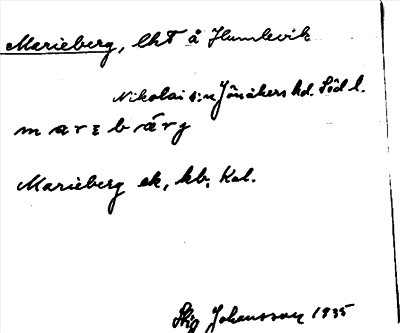 Marieberg, lht å Humlevik
Nikolai s:n Jönåkers hd. Södl.
marεbärj
Marieberg ek, kb, Kal.
Stig Johansson 1935